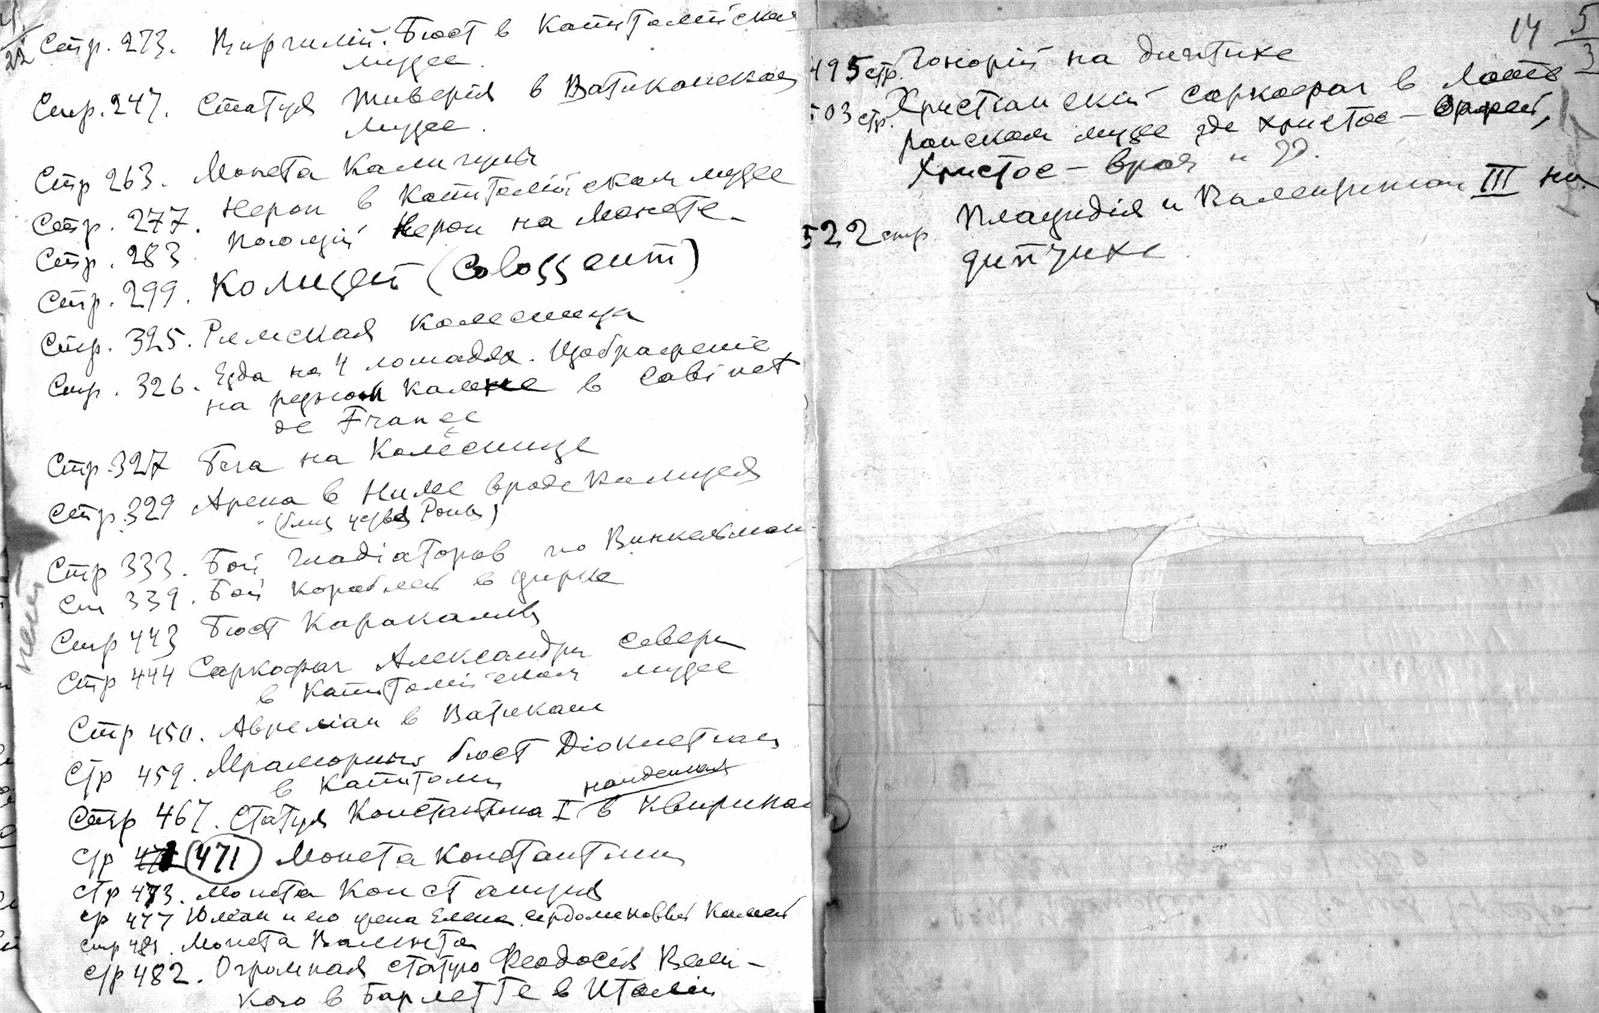 Стр. 273. Виргилій. Бюст в Капитолійском
музее.
Стр. 247. Статуя Тиверія в Ватиканском
музее.
Стр 263. Монета Калигулы
Стр. 277. Нерон в Капитолійском музее
Стр. 283 Нерон на монете
Стр. 299. Колизей (Colosseum)
Стр. 325. Римская колесница
Стр. 326. Езда на 4 лошадях. Изображеніе
на резном камне в Cabinet
de France
Стр. 327 Бега на колеснице
Стр. 329 Арена в Ниме вроде Колизея
Стр 333. Бой гладіаторов по Винкельман
Ст 339. Бой кораблей в цирке
Стр 443 Бюст Каракаллы
Стр 444 Саркофаг Александра Севера
в Капитолійском музее
Стр 450. Авреліан в Ватикане
Стр 459. Мраморный бюст Діоклетіана
в Капитоліи
найденная
Стр 467. Статуя Константина I в Квиринал
стр 471 Монета Константина
стр 473. Монета Констанція
стр 477 Юліан и его жена Елена. сердоликовый камей
стр 481. Монета Валента
стр 482. Огромная статуя Феодосія Вели-
кого в Барлетте в Италіи
14 5/3
495 стр. Гонорій на диптихе
503 стр. Христіанскій саркофаг в Лате
ранском музее где Христос – Орфей,
Христос – врач и др.
522 стр Плацидія и Валентиніан III на
диптихе